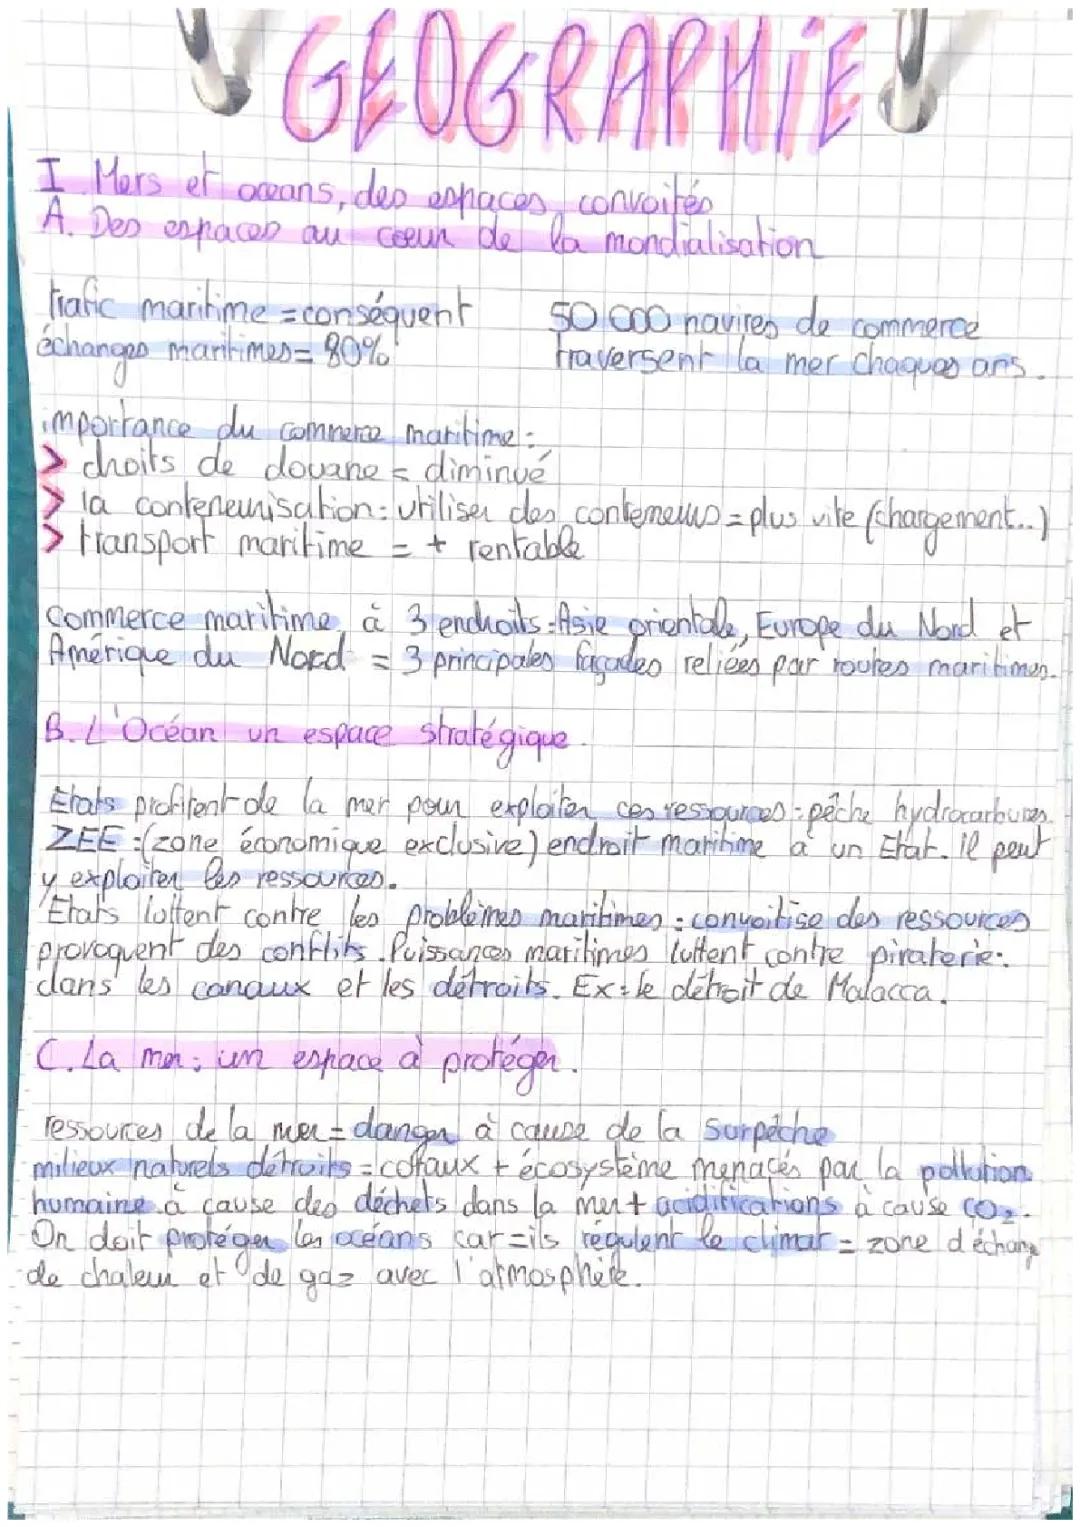 GEOGRAPHiE
I. Mers et oceans, des espaces convoités
A. Des espaces au coeur de la mondialisation
trafic maritime = conséquent
échanges maritimes = 80%
50 000 navires de commerce
traversent la mer chaques ans.
importance du commerce maritime :
> droits de douane = diminué
> la conteneurisation : utiliser des conteneurs = plus vite (chargement...)
> transport maritime = + rentable
Commerce maritime à 3 endroits : Asie orientale, Europe du Nord et
Amérique du Nord = 3 principales façades reliées par routes maritimes.
B. L'Océan un espace stratégique.
Etats profitent de la mer pour exploiter ces ressources : pêche hydrocarbures.
ZEE : (zone économique exclusive) endroit maritime à un Etat. il peut
y exploiter les ressources.
Etats luttent contre les problèmes maritimes : convoitise des ressources
provoquent des conflits. Puissances maritimes luttent contre piraterie :
dans les canaux et les détroits. Ex : le détroit de Malacca.
C. La mer : un espace à protéger.
ressources de la mer = danger à cause de la surpêche
milieux naturels détruits = coraux + écosystème menacés par la pollution
humaine à cause des déchets dans la mer + acidifications à cause CO2.
On doit protéger les océans car = ils régulent le climat = zone d'échang
de chaleur et de gaz avec l'atmosphère.